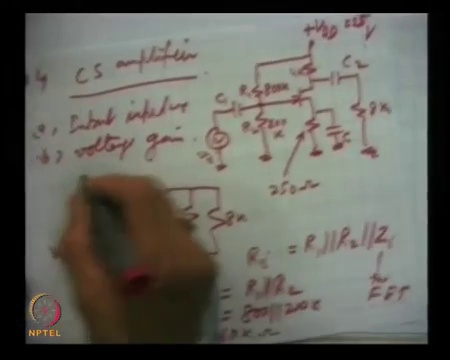 4
CS amplifier
a, Input impedance
b, voltage gain
+VDD = 25 V
C2
R1 800k
C1
8k
R2 200 k
250Ω
8k
Ri = R1 || R2 || Zi
for FET
= R1 || R2
= 800 || 200k
kΩ
NPTEL